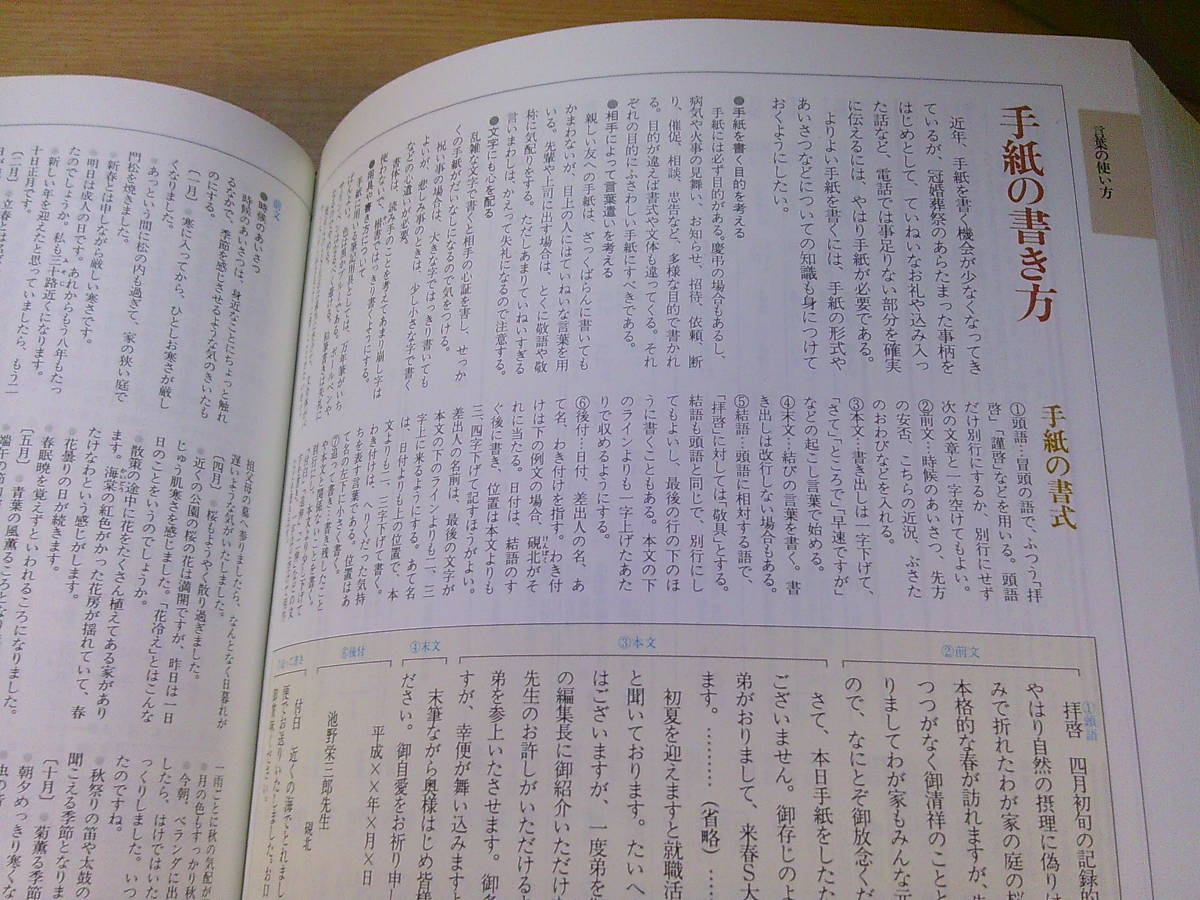 言葉の使い方
手紙の書き方
近年、手紙を書く機会が少なくなってき
ているが、冠婚葬祭のあらたまった事柄を
はじめとして、ていねいなお礼や込み入っ
た話など、電話では事足りない部分を確実
に伝えるには、やはり手紙が必要である。
よりよい手紙を書くには、手紙の形式や
あいさつなどについての知識も身につけて
おくようにしたい。
●手紙を書く目的を考える
手紙には必ず目的がある。慶弔の場合もあるし、
病気や火事の見舞い、お知らせ、招待、依頼、断
り、催促、相談、忠告など、多様な目的で書かれ
る。目的が違えば書式や文体も違ってくる。それ
ぞれの目的にふさわしい手紙にすべきである。
●相手によって言葉遣いを考える
親しい友への手紙は、ざっくばらんに書いても
かまわないが、目上の人にはていねいな言葉を用
いる。先輩や上司に出す場合は、とくに敬語や敬
称に気配りをする。ただしあまりていねいすぎる
言いまわしは、かえって失礼になるので注意する。
●文字にも心を配る
乱雑な文字で書くと相手の心証を害し、せっか
くの手紙がだいなしになるので気をつける。
祝い事の場合は、大きな字ではっきり書いても
よいが、悲しみ事のときは、少し小さな字で書く
などの心遣いが必要。
書体は、読み手のことを考えてあまり崩し字は
使わないで、楷書ではっきり書くようにする。
手紙の書式
①頭語…冒頭の語で、ふつう「拝
啓」「謹啓」などを用いる。頭語
だけ別行にするか、別行にせず
次の文章と一字空けてもよい。
②前文…時候のあいさつ、先方
の安否、こちらの近況、ぶさた
のおわびなどを入れる。
③本文…書き出しは一字下げて、
「さて」「ところで」「早速ですが」
などの起こし言葉で始める。
④末文…結びの言葉を書く。書
き出しは改行しない場合もある。
⑤結語…頭語に相対する語で、
「拝啓」に対しては「敬具」とする。
結語も頭語と同じで、別行にし
てもよいし、最後の行の下のほ
うに書くこともある。本文の下
のラインよりも一字上げたあた
りで収めるようにする。
⑥後付…日付、差出人の名、あ
て名、わき付けを指す。わき付
けは下の例文の場合、硯北がそ
れに当たる。日付は、結語のす
ぐ後に書き、位置は本文よりも
三、四字下げて記すほうがよい。
差出人の名前は、最後の文字が
本文の下のラインよりも二、三
字上に来るようにする。あて名
は、日付よりも上の位置で、本
文よりも二、三字下げて書く。
わき付けは、へりくだった気持
ちを表す言葉である。
て名の左下に小さく書く。
②前文
③本文
④末文
⑥後付
①頭語
拝啓 四月初旬の記録的
やはり自然の摂理に偽りは
みで折れたわが家の庭の桜
本格的な春が訪れますが、
つつがなく御清祥のことと
りましてわが家もみんな元
ので、なにとぞ御放念くだ
さて、本日手紙をしたた
ございません。御存じのよ
弟がおりまして、来春S大
ます。………（省略）…
初夏を迎えますと就職活
と聞いております。たいへ
はございますが、一度弟を
の編集長に御紹介いただけ
先生のお許しがいただける
弟を参上いたさせます。御多
すが、幸便が舞い込みます
末筆ながら奥様はじめ皆様
ださい。御自愛をお祈り申し
平成××年×月×日
池野栄三郎先生
硯北
付白 近くの海でとれまし
便でお送りいたしました。お口
前文
●時候のあいさつ
時候のあいさつは、身近なことにちょっと触れ
るだかで、季節を感じさせるような気のきいたも
のにする。
〔一月〕 ●寒に入ってから、ひとしお寒さが厳し
くなりました。
●あっという間に松の内も過ぎて、家の狭い庭で
門松を焼きました。
●新春とは申しながら厳しい寒さです。
●明日は成人の日です。あれからもう八年もたっ
たのでしょうか。私も三十路近くになります。
●新しい年を迎えたと思っていましたら、もう二
十日正月です。
〔二月〕
祖父母の墓へ参りましたら、なんとなく日暮れが
遅いような気がいたしました。
〔四月〕 ●桜もようやく散り過ぎました。
●近くの公園の桜の花は満開ですが、昨日は一日
じゅう肌寒さを感じました。「花冷え」とはこんな
日のことをいうのでしょうか。
●散策の途中に花をたくさん植えてある家があり
ます。海棠の紅色がかった花房が揺れていて、春
たけなわという感じがします。
●花曇りの日が続きます。
●春眠暁を覚えずといわれるころになりました。
〔五月〕 ●青葉の風薫るころとなりま
一雨ごとに秋の気配が
●月の色もすっかり秋
●今朝、ベランダに出
したら、はけではいた
っくりしました。いつ
たのですね。
●秋祭りの笛や太鼓の
聞こえる季節となりま
〔十月〕 ●菊薫る季節
●朝夕めっきり寒くな